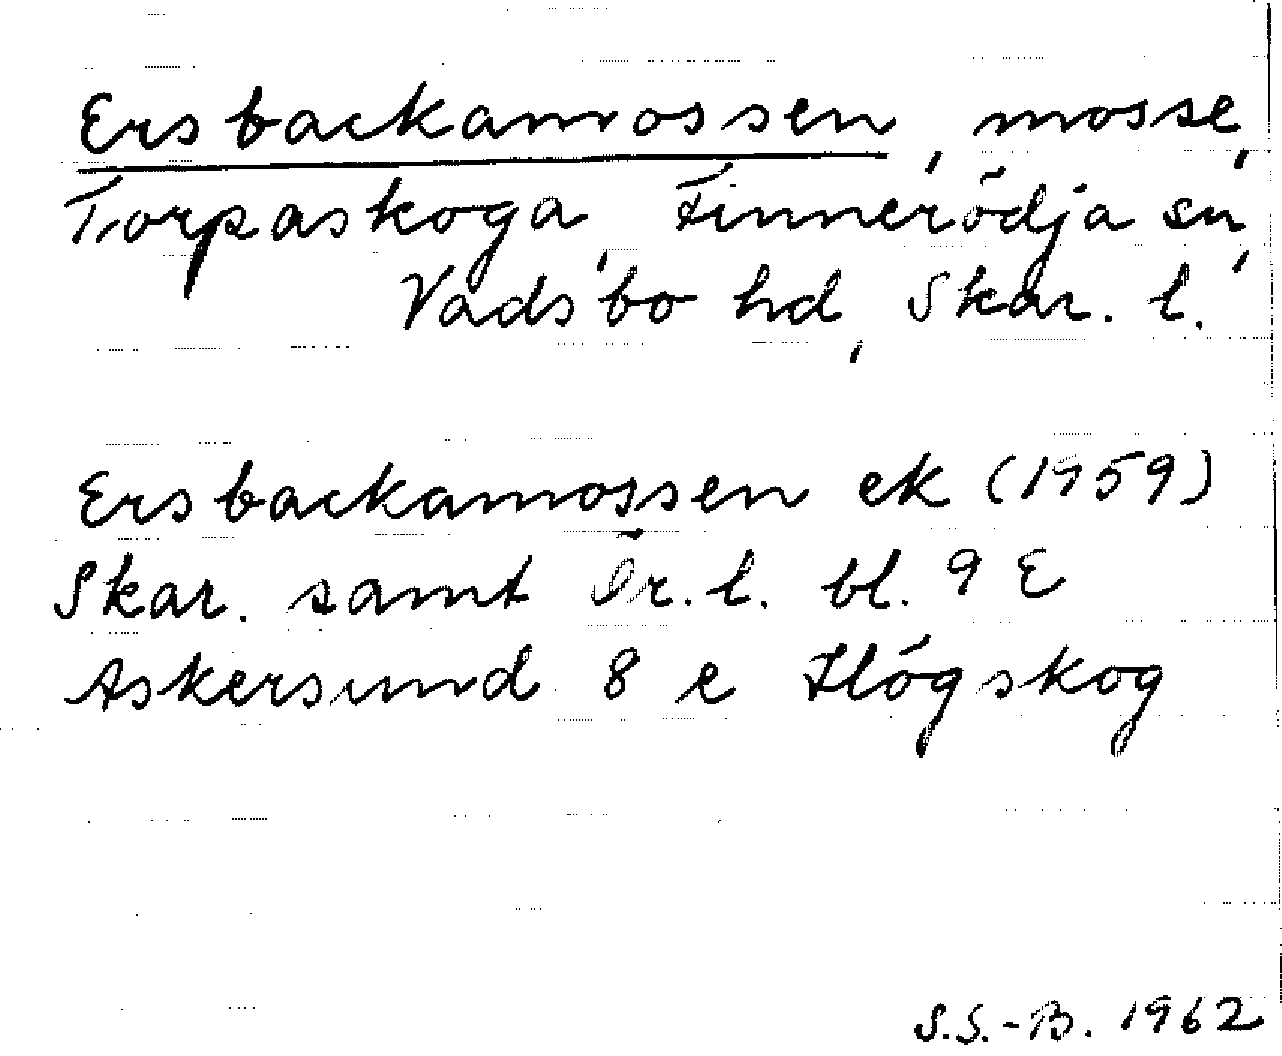 Ersbackamossen, mosse,
Torpaskoga, Finnerödja sn,
Vadsbo hd, Skar. l.
Ersbackamossen ek (1959)
Skar. samt Ör. l. bl. 9 E
Askersund 8 e Högskog
S.S.-B. 1962